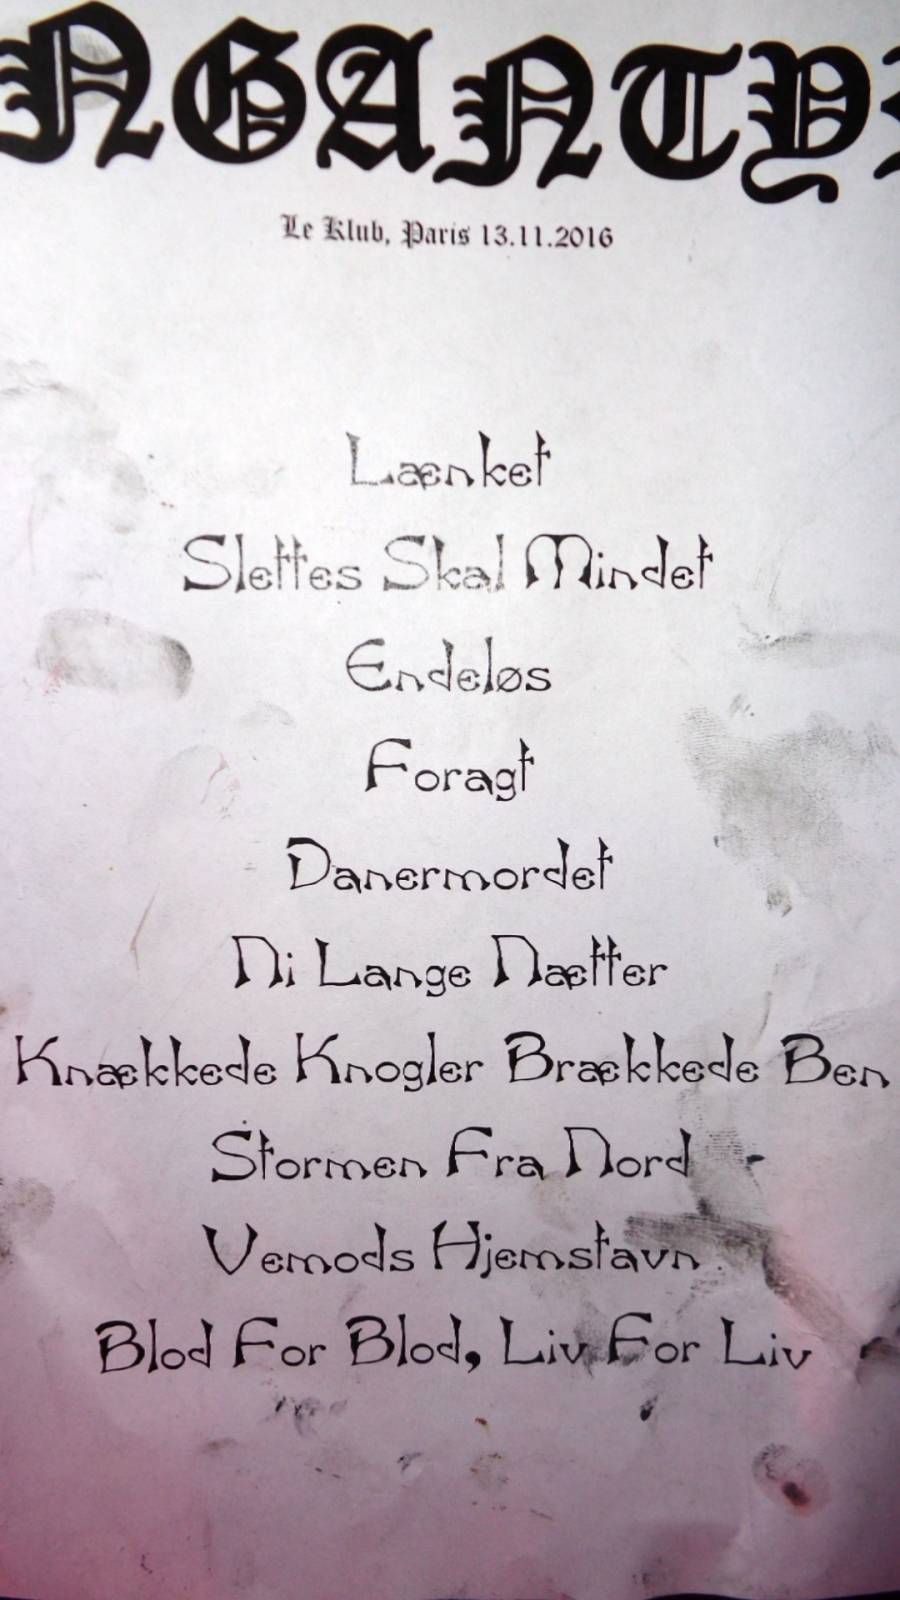 NGANTY
Le Klub, Paris 13.11.2016
Lænket
Slettes Skal Mindet
Endeløs
Foragt
Danermordet
Ni Lange Nætter
Knækkede Knogler Brækkede Ben
Stormen Fra Nord
Vemods Hjemstavn
Blod For Blod, Liv For Liv